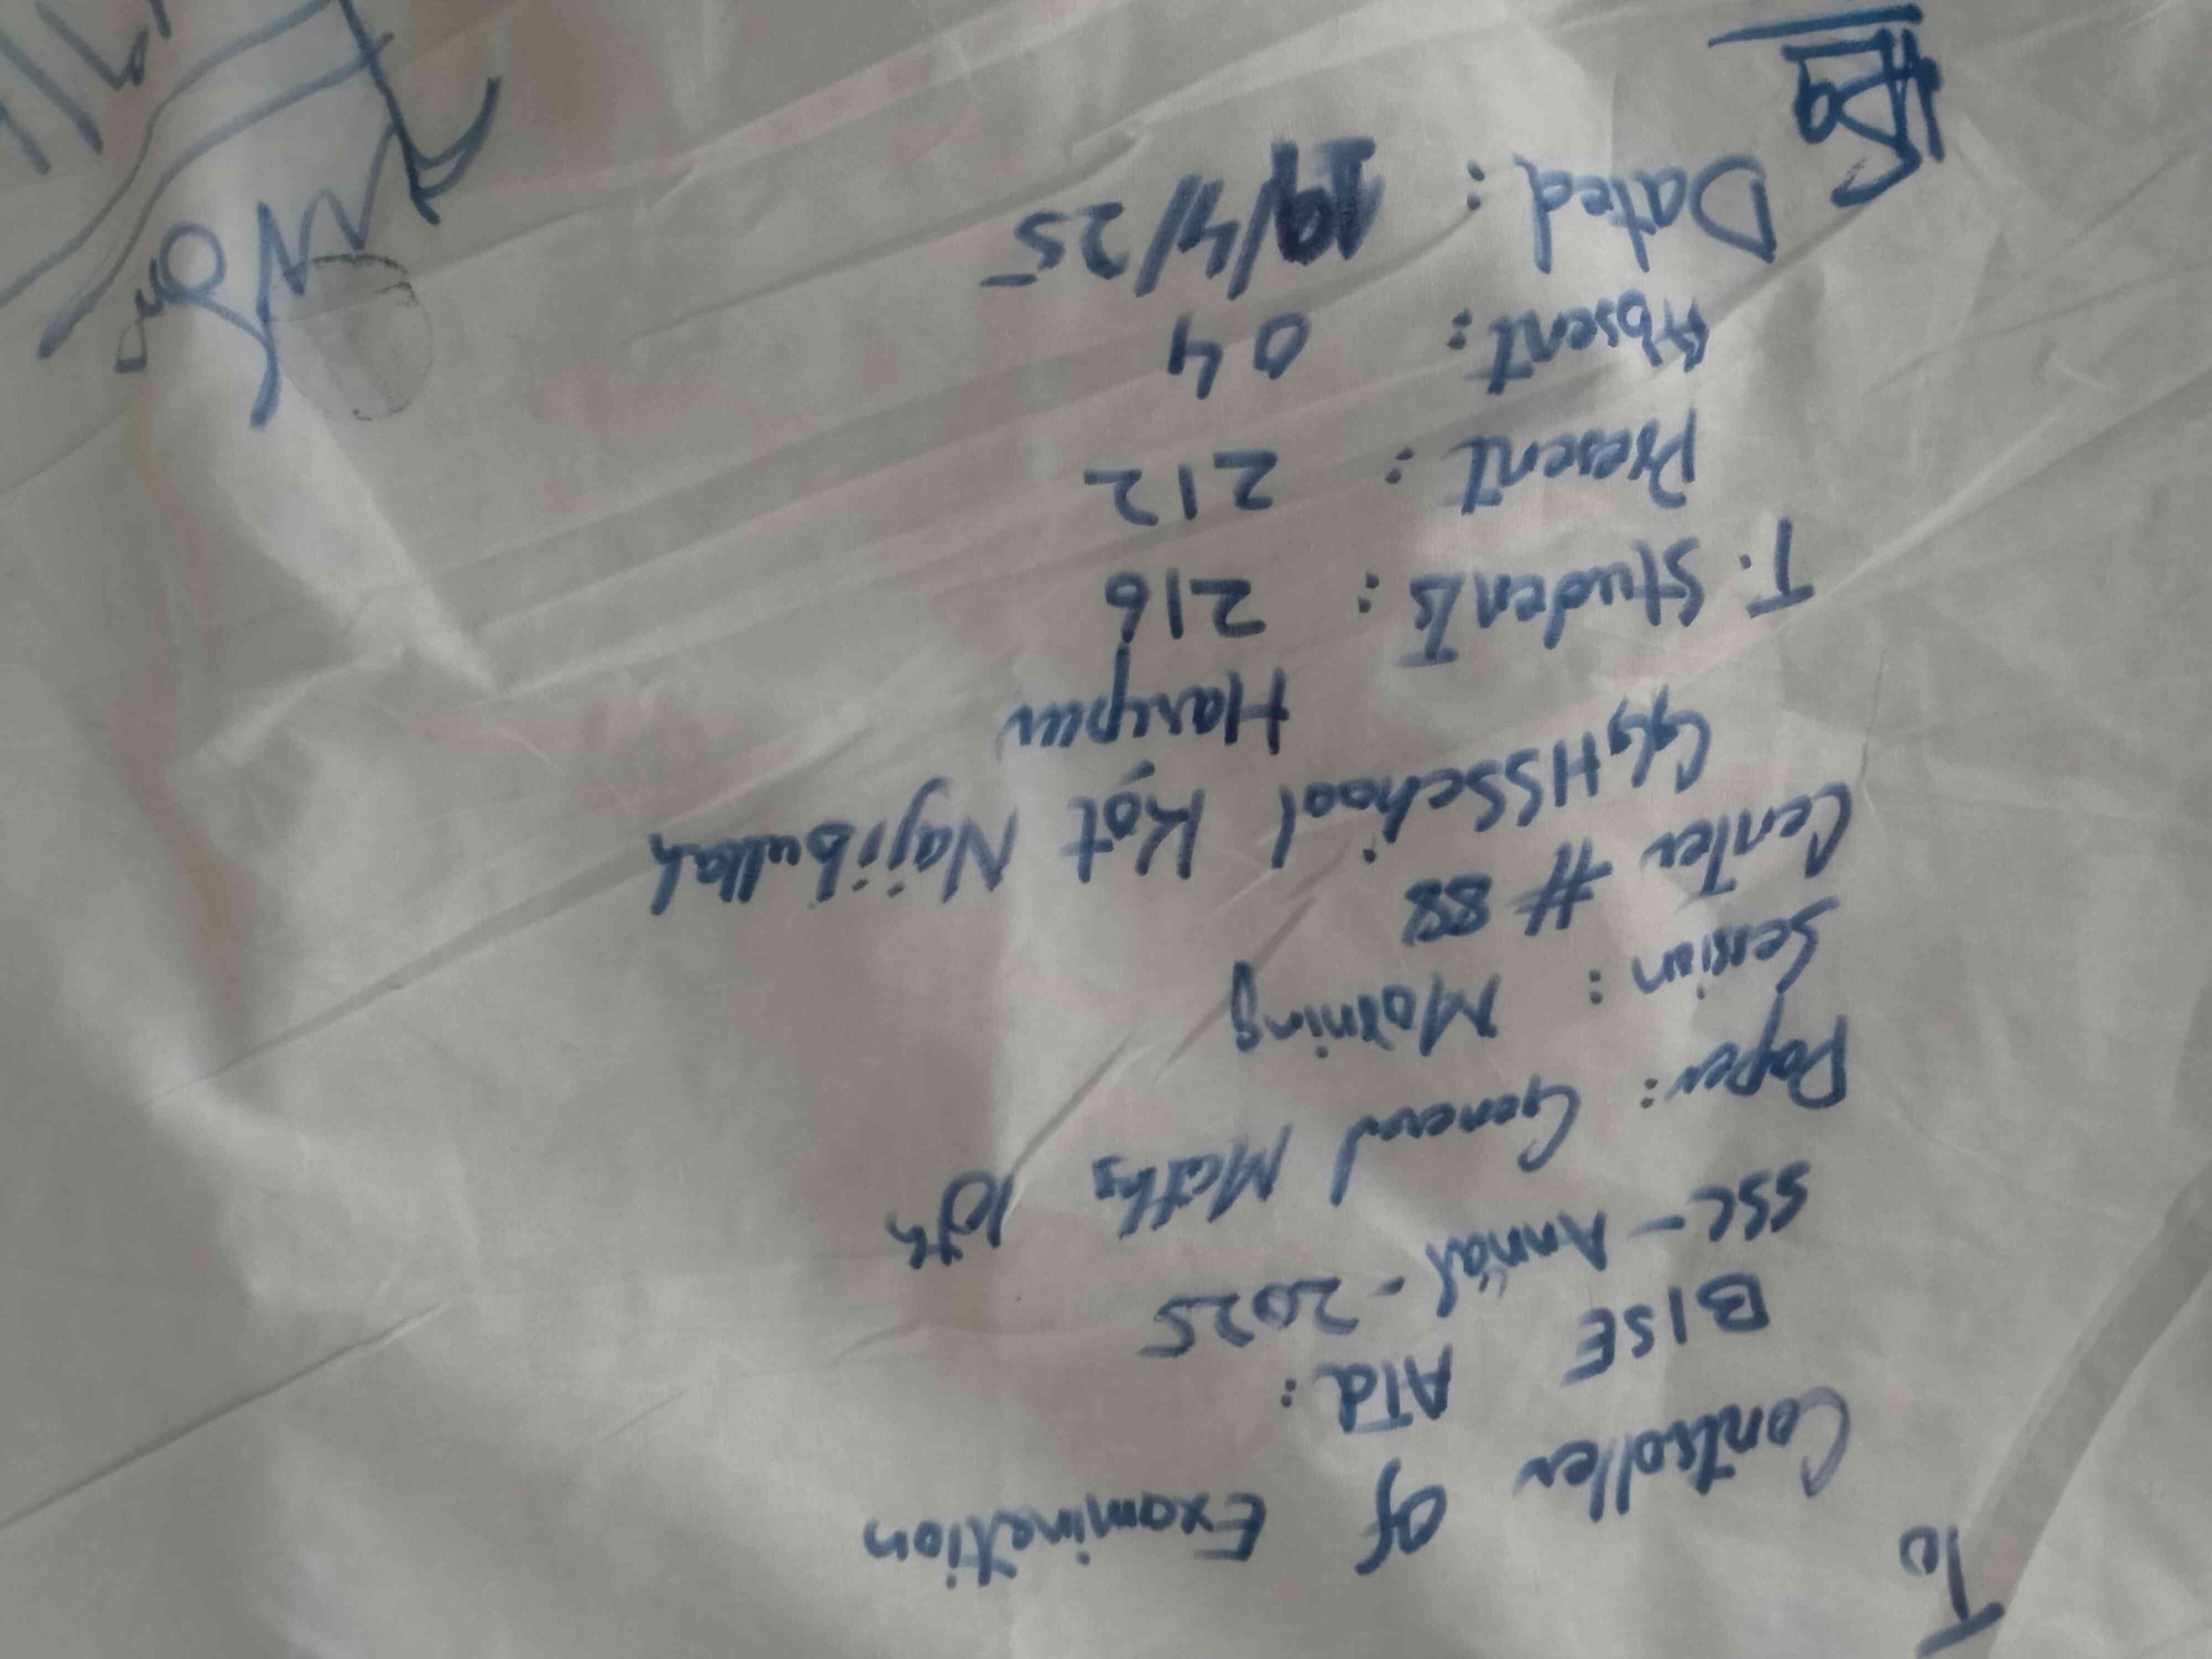 To
Controller of Examination
BISE ATd:
SSC - Annual - 2025
Paper: General Maths 10th
Session: Morning
Center # 88
GGHSSchool Kot Najibullah
Haripur
T. Students: 216
Present: 212
Absent: 04
Dated: 19/4/25